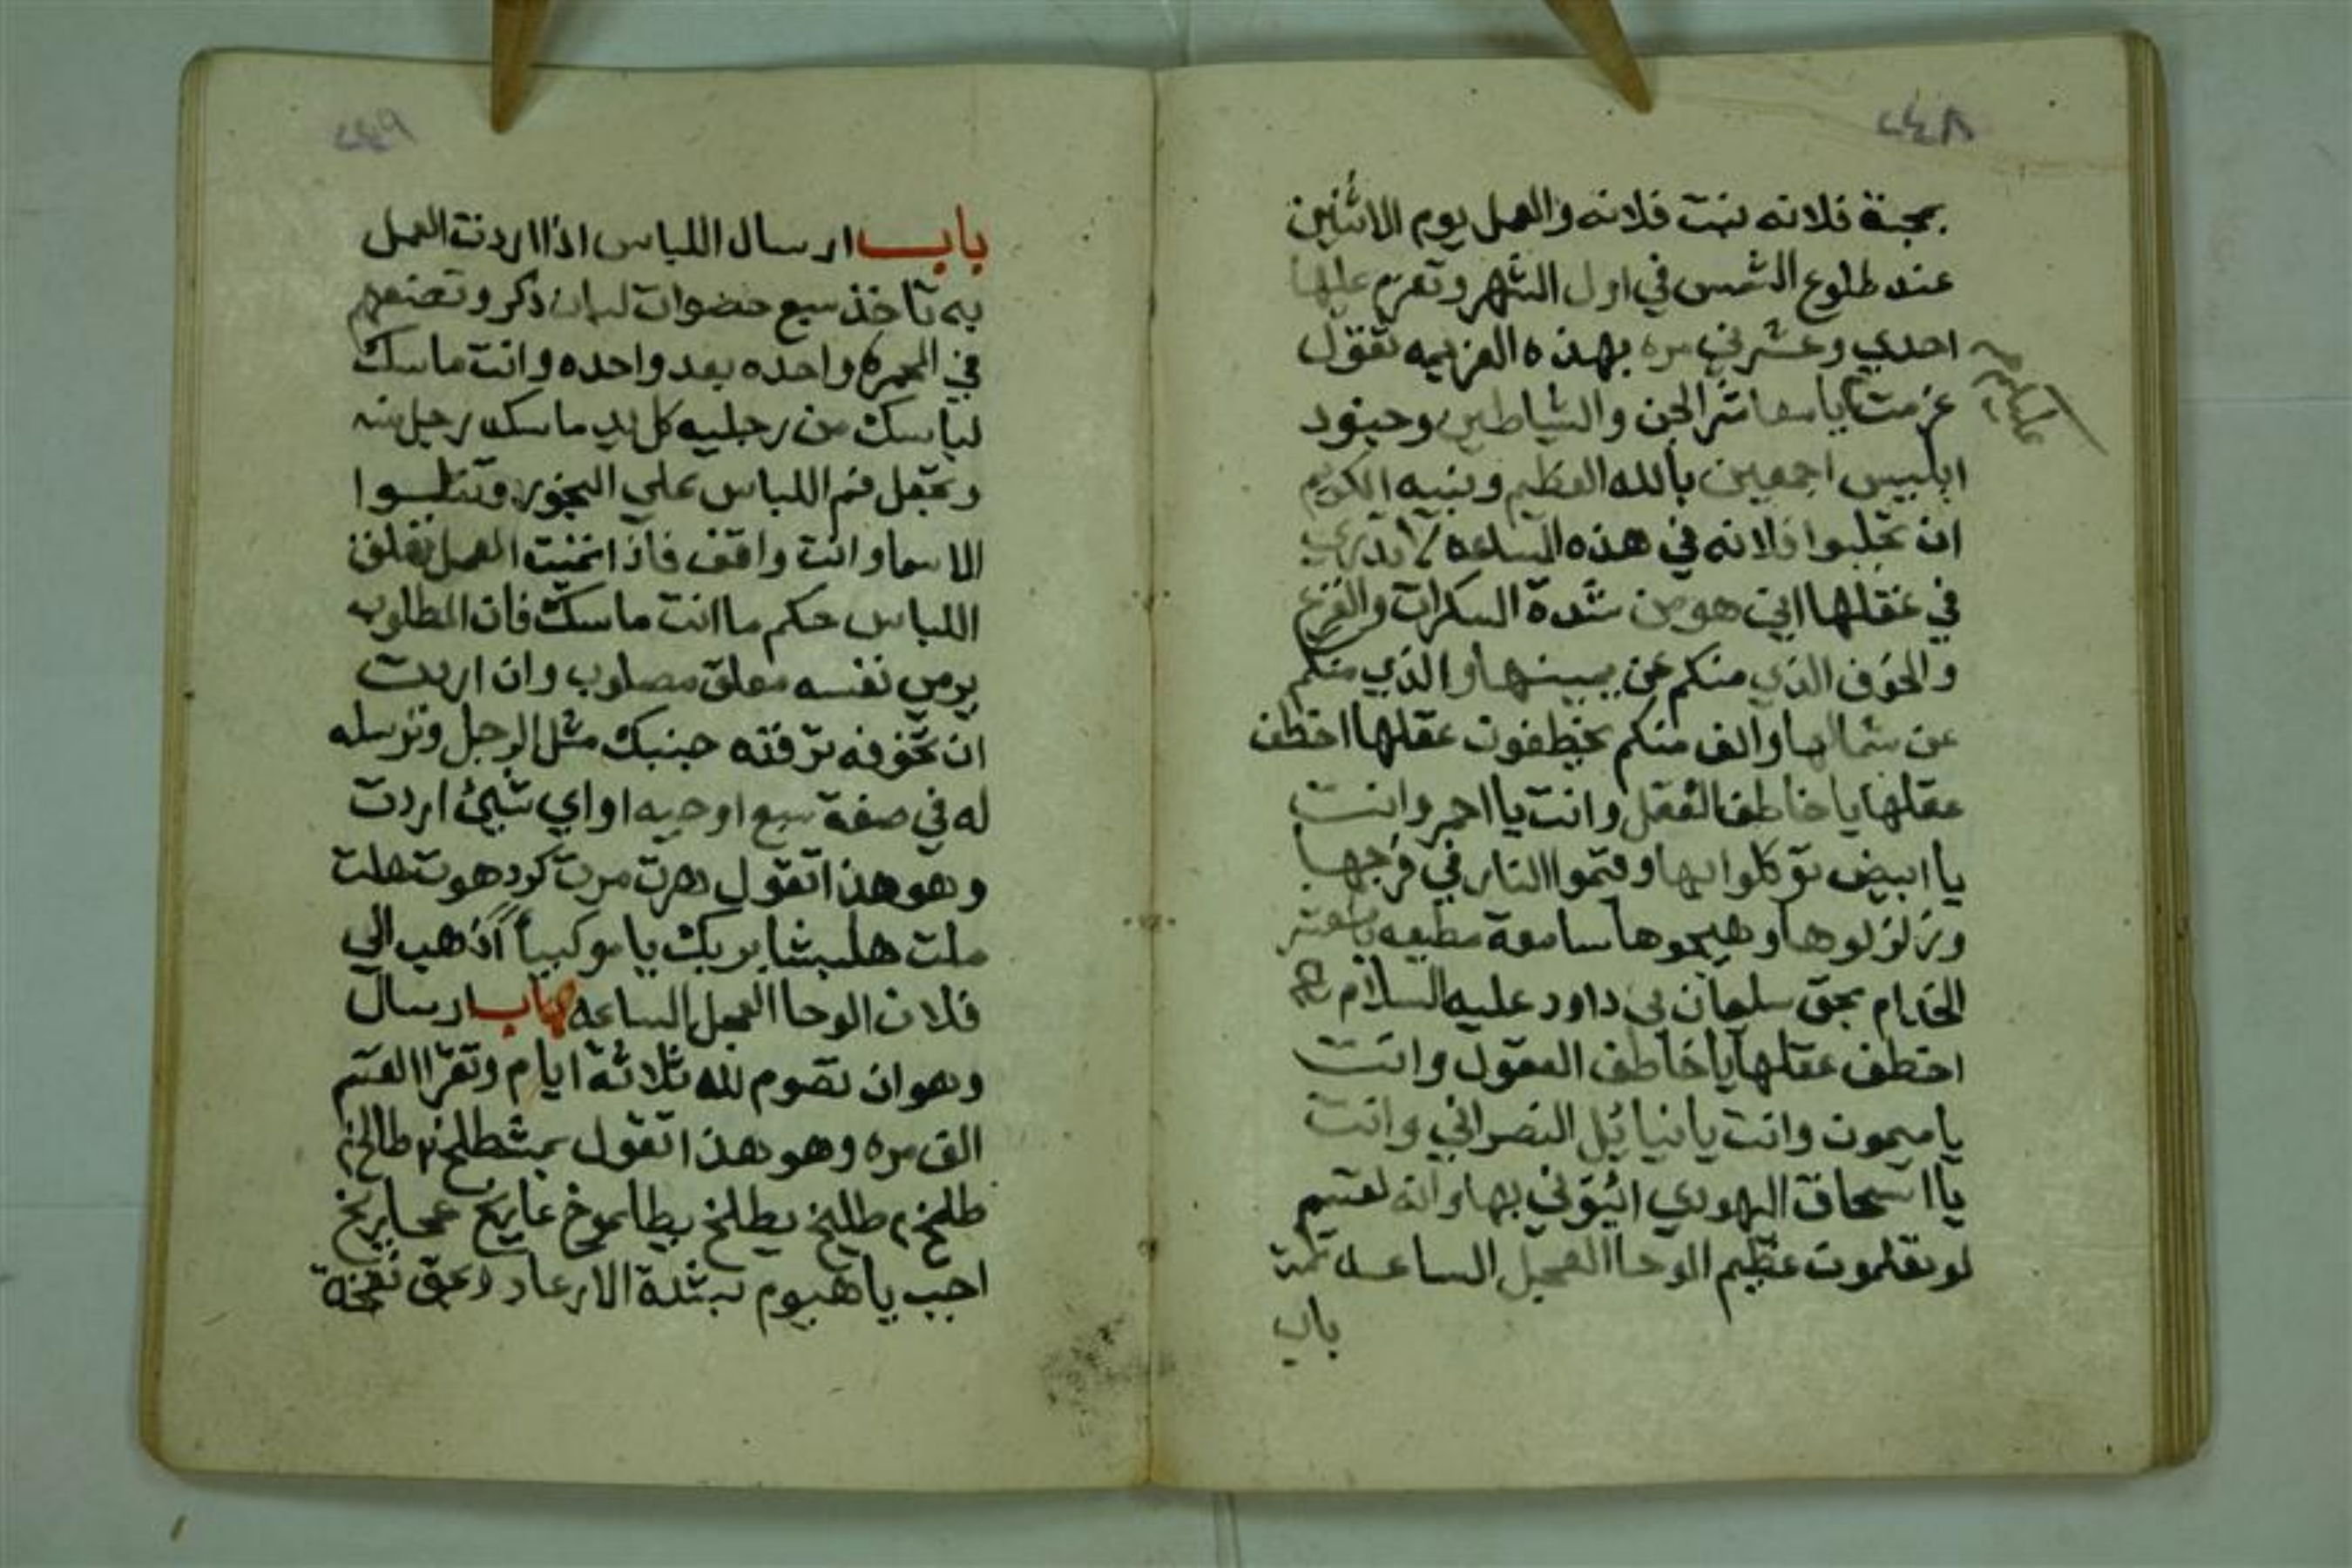 ٢٤٨
بمحبة فلانه بنت فلانه والعمل يوم الاثنين
عند طلوع الشمس في اول الشهر وتعزم عليها
احدي وعشرين مره بهذه العزيمه تقول
عزمت يا معاشر الجن والشياطين وجنود
عليكم
ابليس اجمعين بالله العظيم وبنبيه الكريم
ان تجلبوا فلانه في هذه الساعه لا تدري
في عقلها اين هو من شدة السكرات والفزع
والخوف الذي منكم عن يمينها والذي منكم
عن شمالها والف منكم يخطفون عقلها اخطف
عقلها يا خاطف العقل وانت يا احمر وانت
يا ابيض توكلوا بها وقتموا النار في فرجها
وزلزلوها وهيجوها سامعة مطيعه يا معشر
الخدام بحق سليمان بن داود عليه السلام
اخطف عقلها يا خاطف العقول وانت
يا ميمون وانت يا نيائيل النصراني وانت
يا اسحاق اليهودي ائتوني بها وانه لقسم
لو تعلمون عظيم الوحا العجل الساعه تمت
باب
٢٤٩
باب ارسال اللباس اذا اردت العمل
به تاخذ سبع حضوات لبان ذكر وتضعهم
في المجمره واحده بعد واحده وانت ماسك
لباسك من رجليه كل يد ماسك رجل منه
وتجعل فم اللباس علي البخور وتتلوا
الاسما وانت واقف فاذا تميت العمل تعلق
اللباس حكم ما انت ماسك فان المطلوب
يرمى نفسه معلق مصلوب وان اردت
ان تخوفه ترقته جنبك مثل الرجل وترسله
له في صفة سبع او حيه او اي شيئ اردت
وهو هذا تقول دهرت مرت كرد هوت هلت
ملت هلبشا بريك يا موكبيا اذهب الي
فلان الوحا العجل الساعه باب ارسال
وهو ان تصوم لله ثلاثة ايام وتقرا القسم
الف مره وهو هذا تقول بمشطلخ ٢ طالخ ٢
طلخ ٢ طليخ يطلخ بيطاموخ عايخ عمايريخ
اجب يا هيوم بشدة الارعاد وبحق نفخة